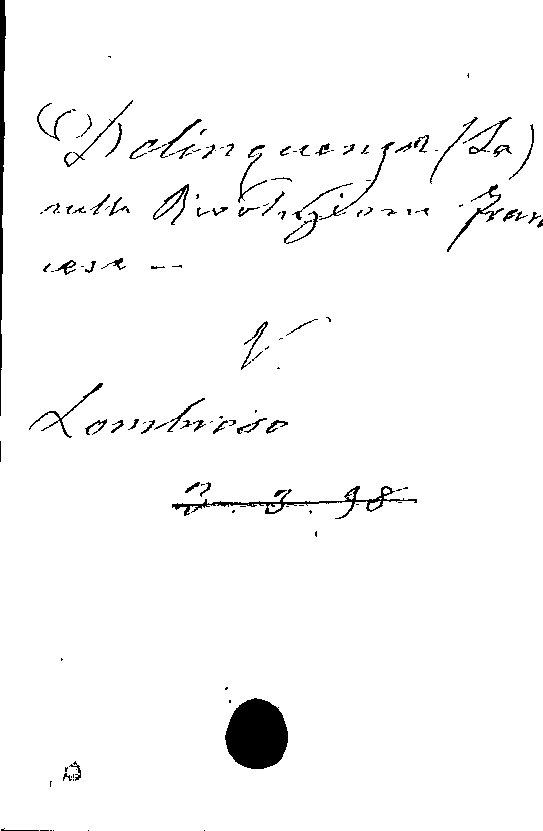 Delinquenza (La)
nella Rivoluzione fran
cese —
V.
Lombroso
3.3.98